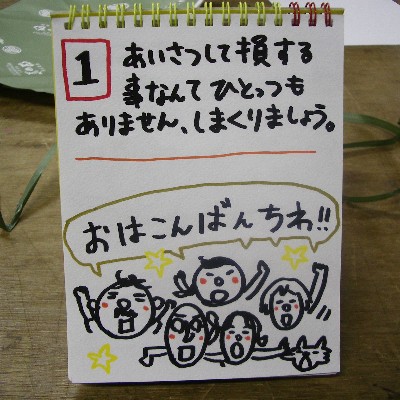 1
あいさつして損する
事なんてひとっつも
ありません、しまくりましょう。
おはこんばんちわ!!